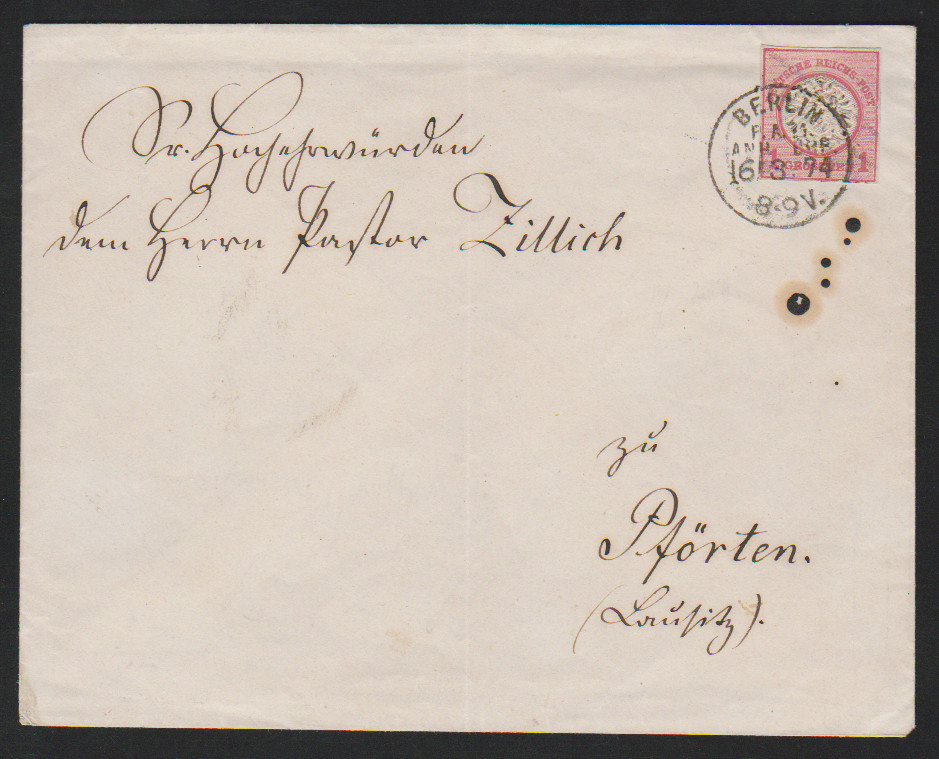 DEUTSCHE REICHS-POST
1 GROSCHEN 1
BERLIN
P.A.
ANH.
16 3 74
8-9V.
Sr. Hochehrwürden
dem Herrn Pastor Zillich
zu
Pförten.
(Lausitz).